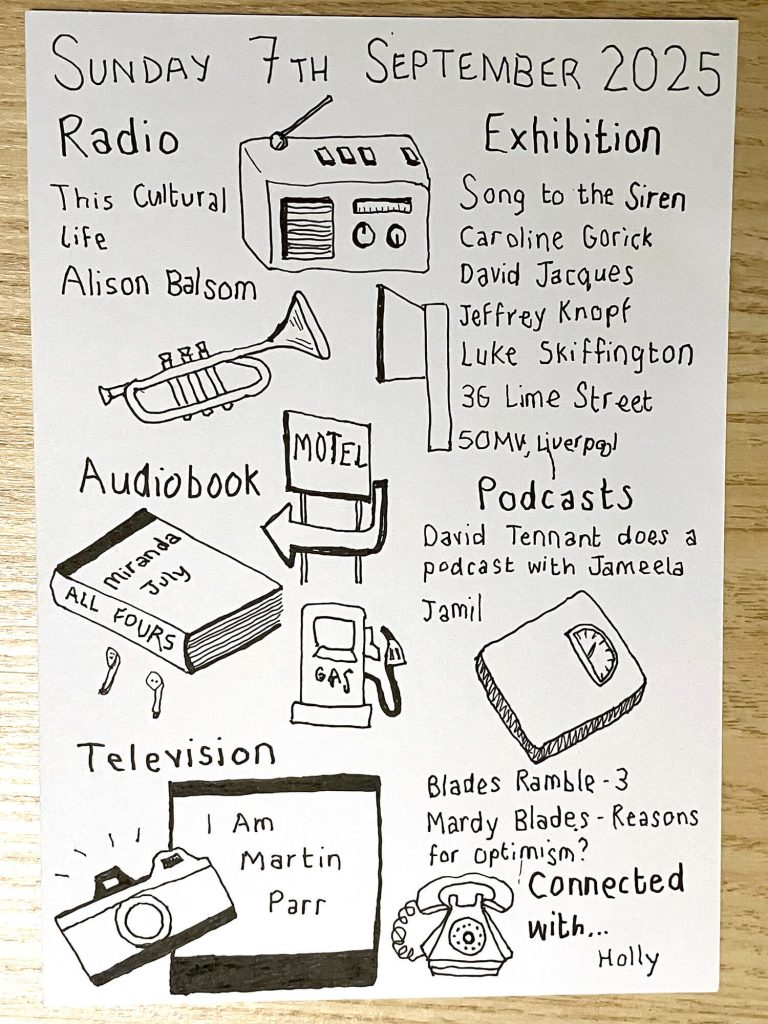 SUNDAY 7TH SEPTEMBER 2025
Radio
This Cultural
Life
Alison Balsom
Exhibition
Song to the Siren
Caroline Gorick
David Jacques
Jeffrey Knopf
Luke Skiffington
36 Lime Street
50MV, Liverpool
Audiobook
Miranda
July
ALL FOURS
MOTEL
GAS
Podcasts
David Tennant does a
podcast with Jameela
Jamil
Blades Ramble - 3
Mardy Blades - Reasons
for optimism?
Television
I Am
Martin
Parr
Connected
with...
Holly